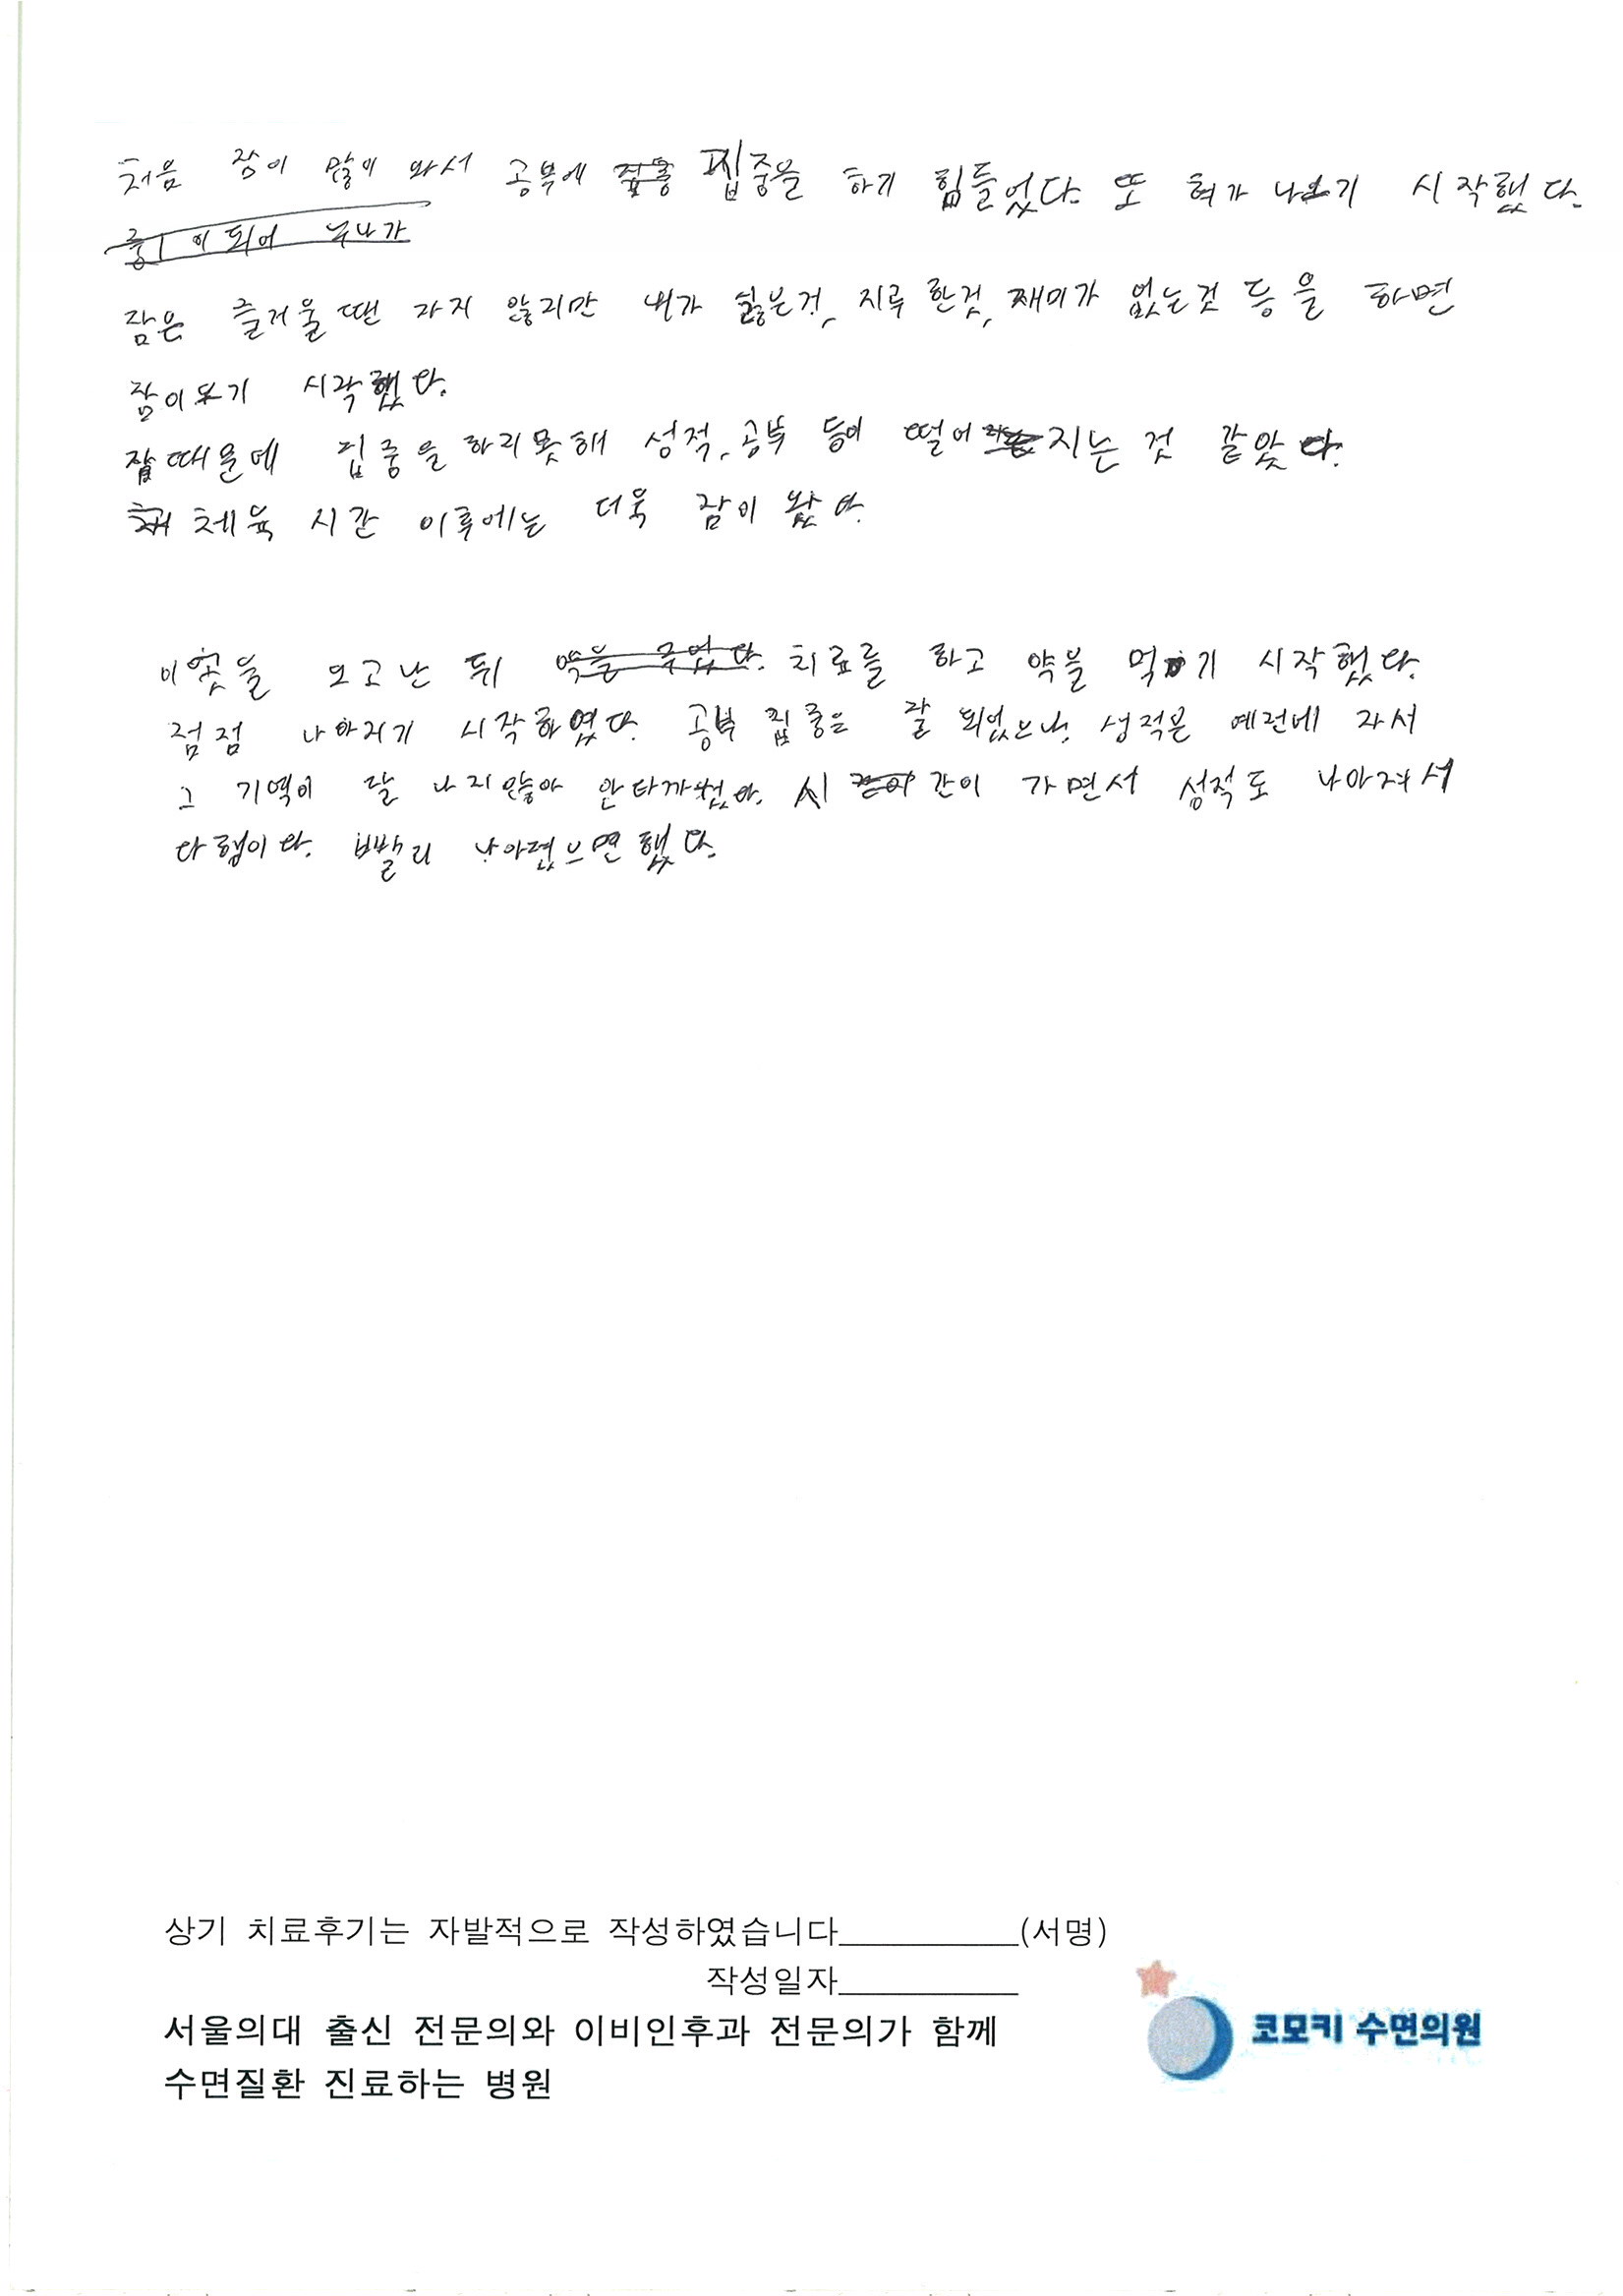 처음 잠이 많이 와서 공부에 집중을 하기 힘들었다. 또 혀가 나오기 시작했다.
중1이 되어 누나가
잠은 즐거울 땐 자지 않지만 내가 싫은것, 지루한것, 재미가 없는것 등을 하면
잠이오기 시작했다.
잠때문에 집중을 하지못해 성적, 공부 등이 떨어지는 것 같았다.
체육 시간 이후에는 더욱 잠이 왔다.
이것을 보고 난 뒤 약을 주었다. 치료를 하고 약을 먹기 시작했다.
점점 나아지기 시작하였다. 공부 집중은 잘 되었으나, 성적은 예전에 자서
그 기억이 잘 나지않아 안타까웠다. 시간이 가면서 성적도 나아져서
다행이다. 빨리 나아졌으면 했다.
상기 치료후기는 자발적으로 작성하였습니다__________(서명)
작성일자__________
서울의대 출신 전문의와 이비인후과 전문의가 함께
수면질환 진료하는 병원
코모키 수면의원